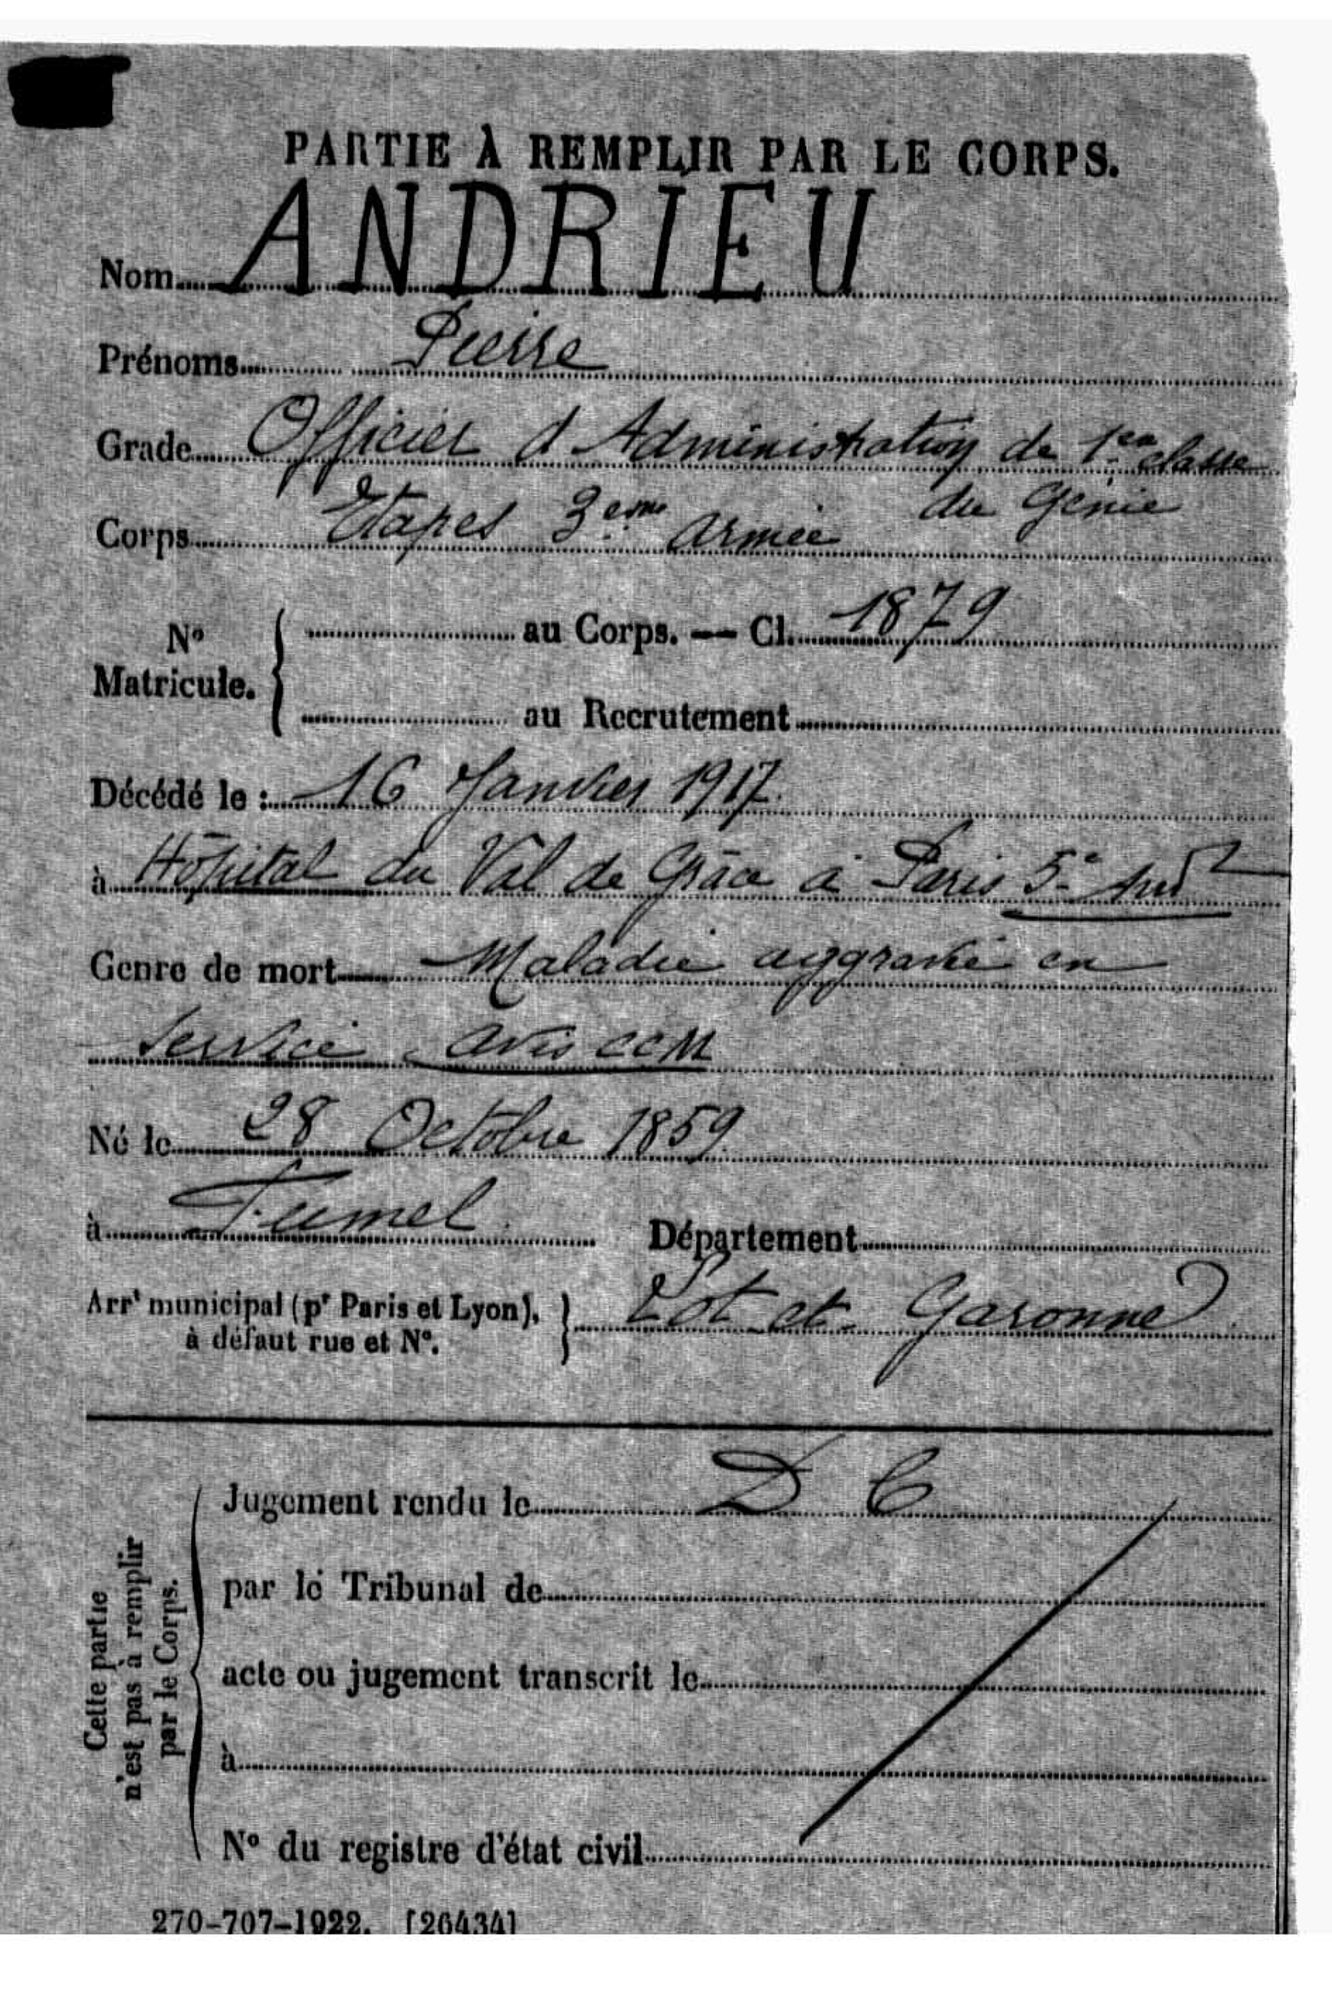 PARTIE À REMPLIR PAR LE CORPS.
Nom ANDRIEU
Prénoms Pierre
Grade Officier d'Administration de 1ère classe
du Génie
Corps Etapes 3eme Armée
N° Matricule. au Corps. — Cl. 1879
au Recrutement
Décédé le : 16 Janvier 1917.
à Hôpital du Val de Grâce à Paris 5e Arrt
Genre de mort Maladie aggravée en
Service avis CCM
Né le 28 Octobre 1859.
à Fumel. Département
Arrt municipal (pr Paris et Lyon), à défaut rue et N°. Lot et Garonne
Cette partie n'est pas à remplir par le Corps.
Jugement rendu le D C
par le Tribunal de
acte ou jugement transcrit le
à
N° du registre d'état civil
270-707-1922. [26434]